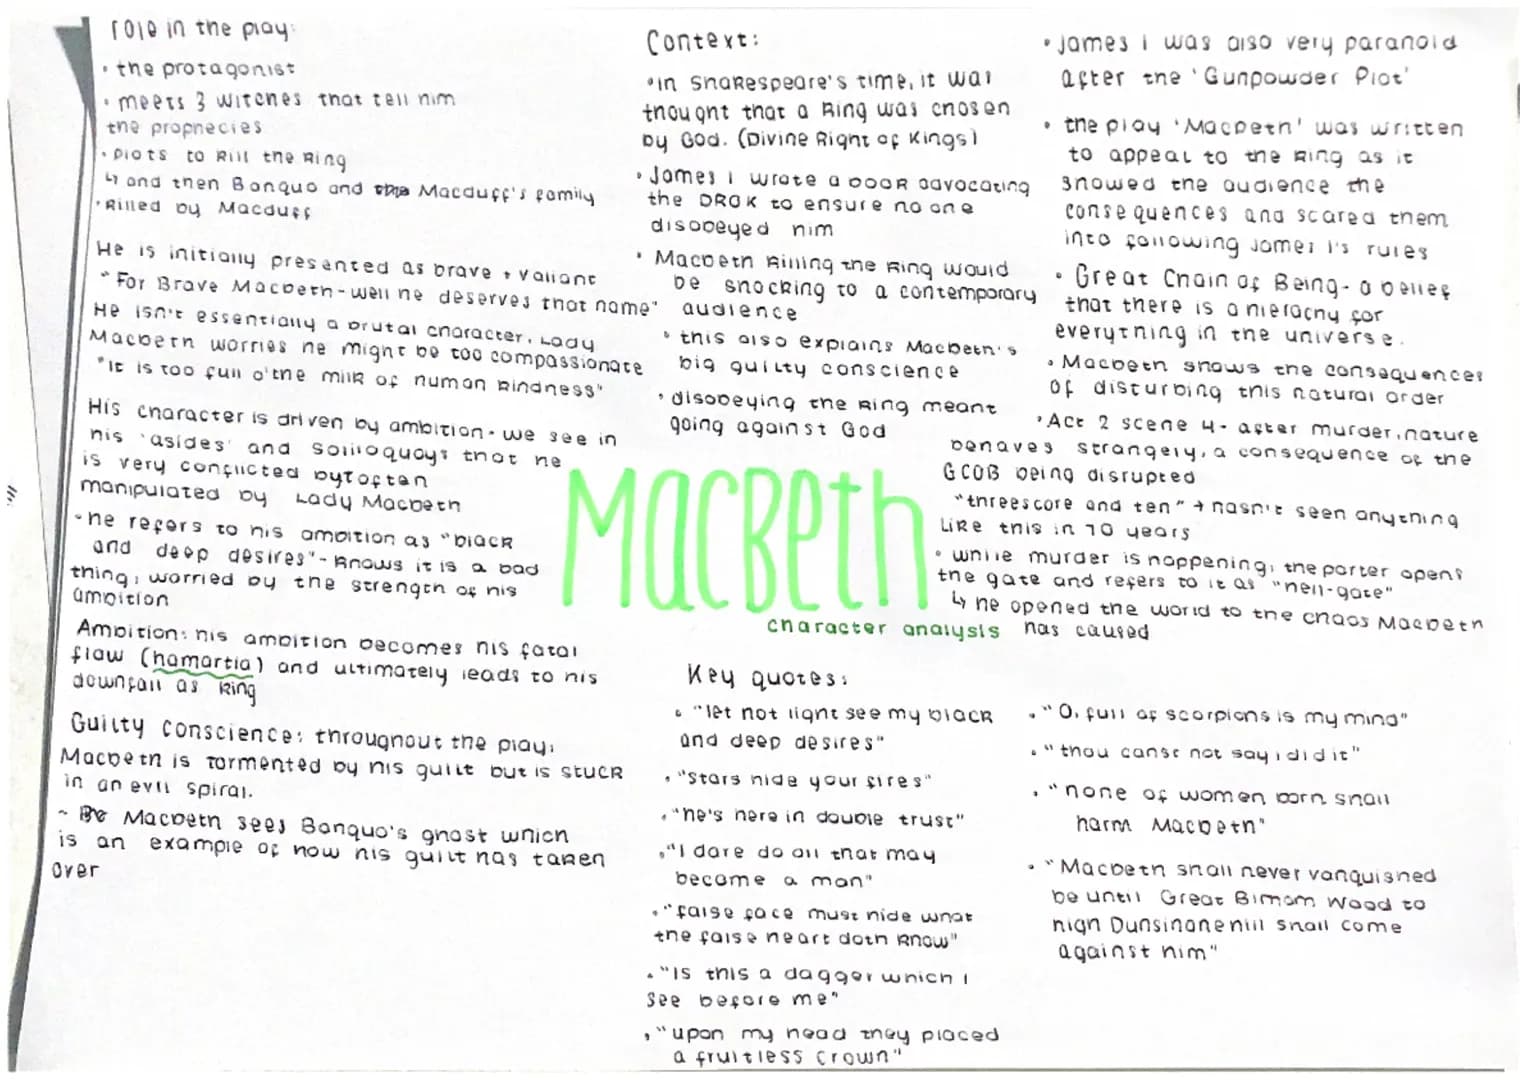 role in the play:
• the protagonist
• meets 3 witches that tell him
the prophecies
• plots to kill the king
↳ and then Banquo and Macduff's family
• killed by Macduff
He is initially presented as brave + valiant
"For Brave Macbeth - well he deserves that name"
He isn't essentially a brutal character, Lady
Macbeth worries he might be too compassionate
"It is too full o'the milk of human kindness"
His character is driven by ambition - we see in
his 'asides' and soliloquoys that he
is very conflicted but often
manipulated by Lady Macbeth
- he refers to his ambition as "black
and deep desires" - knows it is a bad
thing, worried by the strength of his
ambition
Ambition: his ambition becomes his fatal
flaw (hamartia) and ultimately leads to his
downfall as king
Guilty conscience: throughout the play,
Macbeth is tormented by his guilt but is stuck
in an evil spiral.
~ Macbeth sees Banquo's ghost which
is an example of how his guilt has taken
over
Context:
• in Shakespeare's time, it was
thought that a king was chosen
by God. (Divine Right of Kings)
• James I wrote a book advocating
the DROK to ensure no one
disobeyed him
• Macbeth killing the king would
be shocking to a contemporary
audience
• this also explains Macbeth's
big guilty conscience
• disobeying the king meant
going against God
• James I was also very paranoid
after the 'Gunpowder Plot'
• the play 'Macbeth' was written
to appeal to the king as it
showed the audience the
consequences and scared them
into following James I's rules
• Great Chain of Being - a belief
that there is a hierachy for
everything in the universe.
• Macbeth shows the consequences
of disturbing this natural order
• Act 2 scene 4 - after murder, nature
behaves strangely, a consequence of the
GCOB being disrupted
"threescore and ten" → hasn't seen anything
like this in 70 years
• while murder is happening, the porter opens
the gate and refers to it as "hell-gate"
↳ he opened the world to the chaos Macbeth
has caused
Macbeth
character analysis
Key quotes:
• "let not light see my black
and deep desires"
• "Stars hide your fires"
• "he's here in double trust"
• "I dare do all that may
become a man"
• "false face must hide what
the false heart doth know"
• "Is this a dagger which I
see before me"
• "upon my head they placed
a fruitless crown"
• "O, full of scorpions is my mind"
• "thou canst not say i did it"
• "none of women born shall
harm Macbeth"
• "Macbeth shall never vanquished
be until Great Birnam Wood to
high Dunsinane hill shall come
against him"